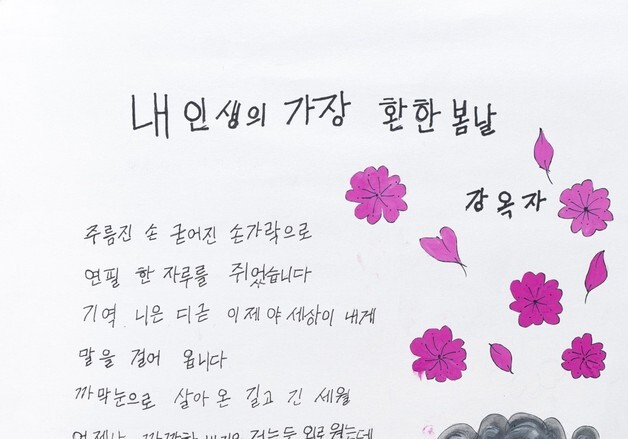 내 인생의 가장 환한 봄날
강옥자
주름진 손 굳어진 손가락으로
연필 한 자루를 쥐었습니다
기역 니은 디귿 이제야 세상이 내게
말을 걸어 옵니다
까막눈으로 살아온 길고 긴 세월